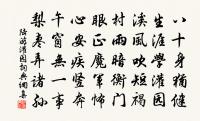 八十身猶健
生涯學灌園
溪風吹短褐
村雨暗衡門
眼正魔軍怖
心安疾豎奔
午窗無一事
梨棗弄諸孫
陸游灌園詞典網集